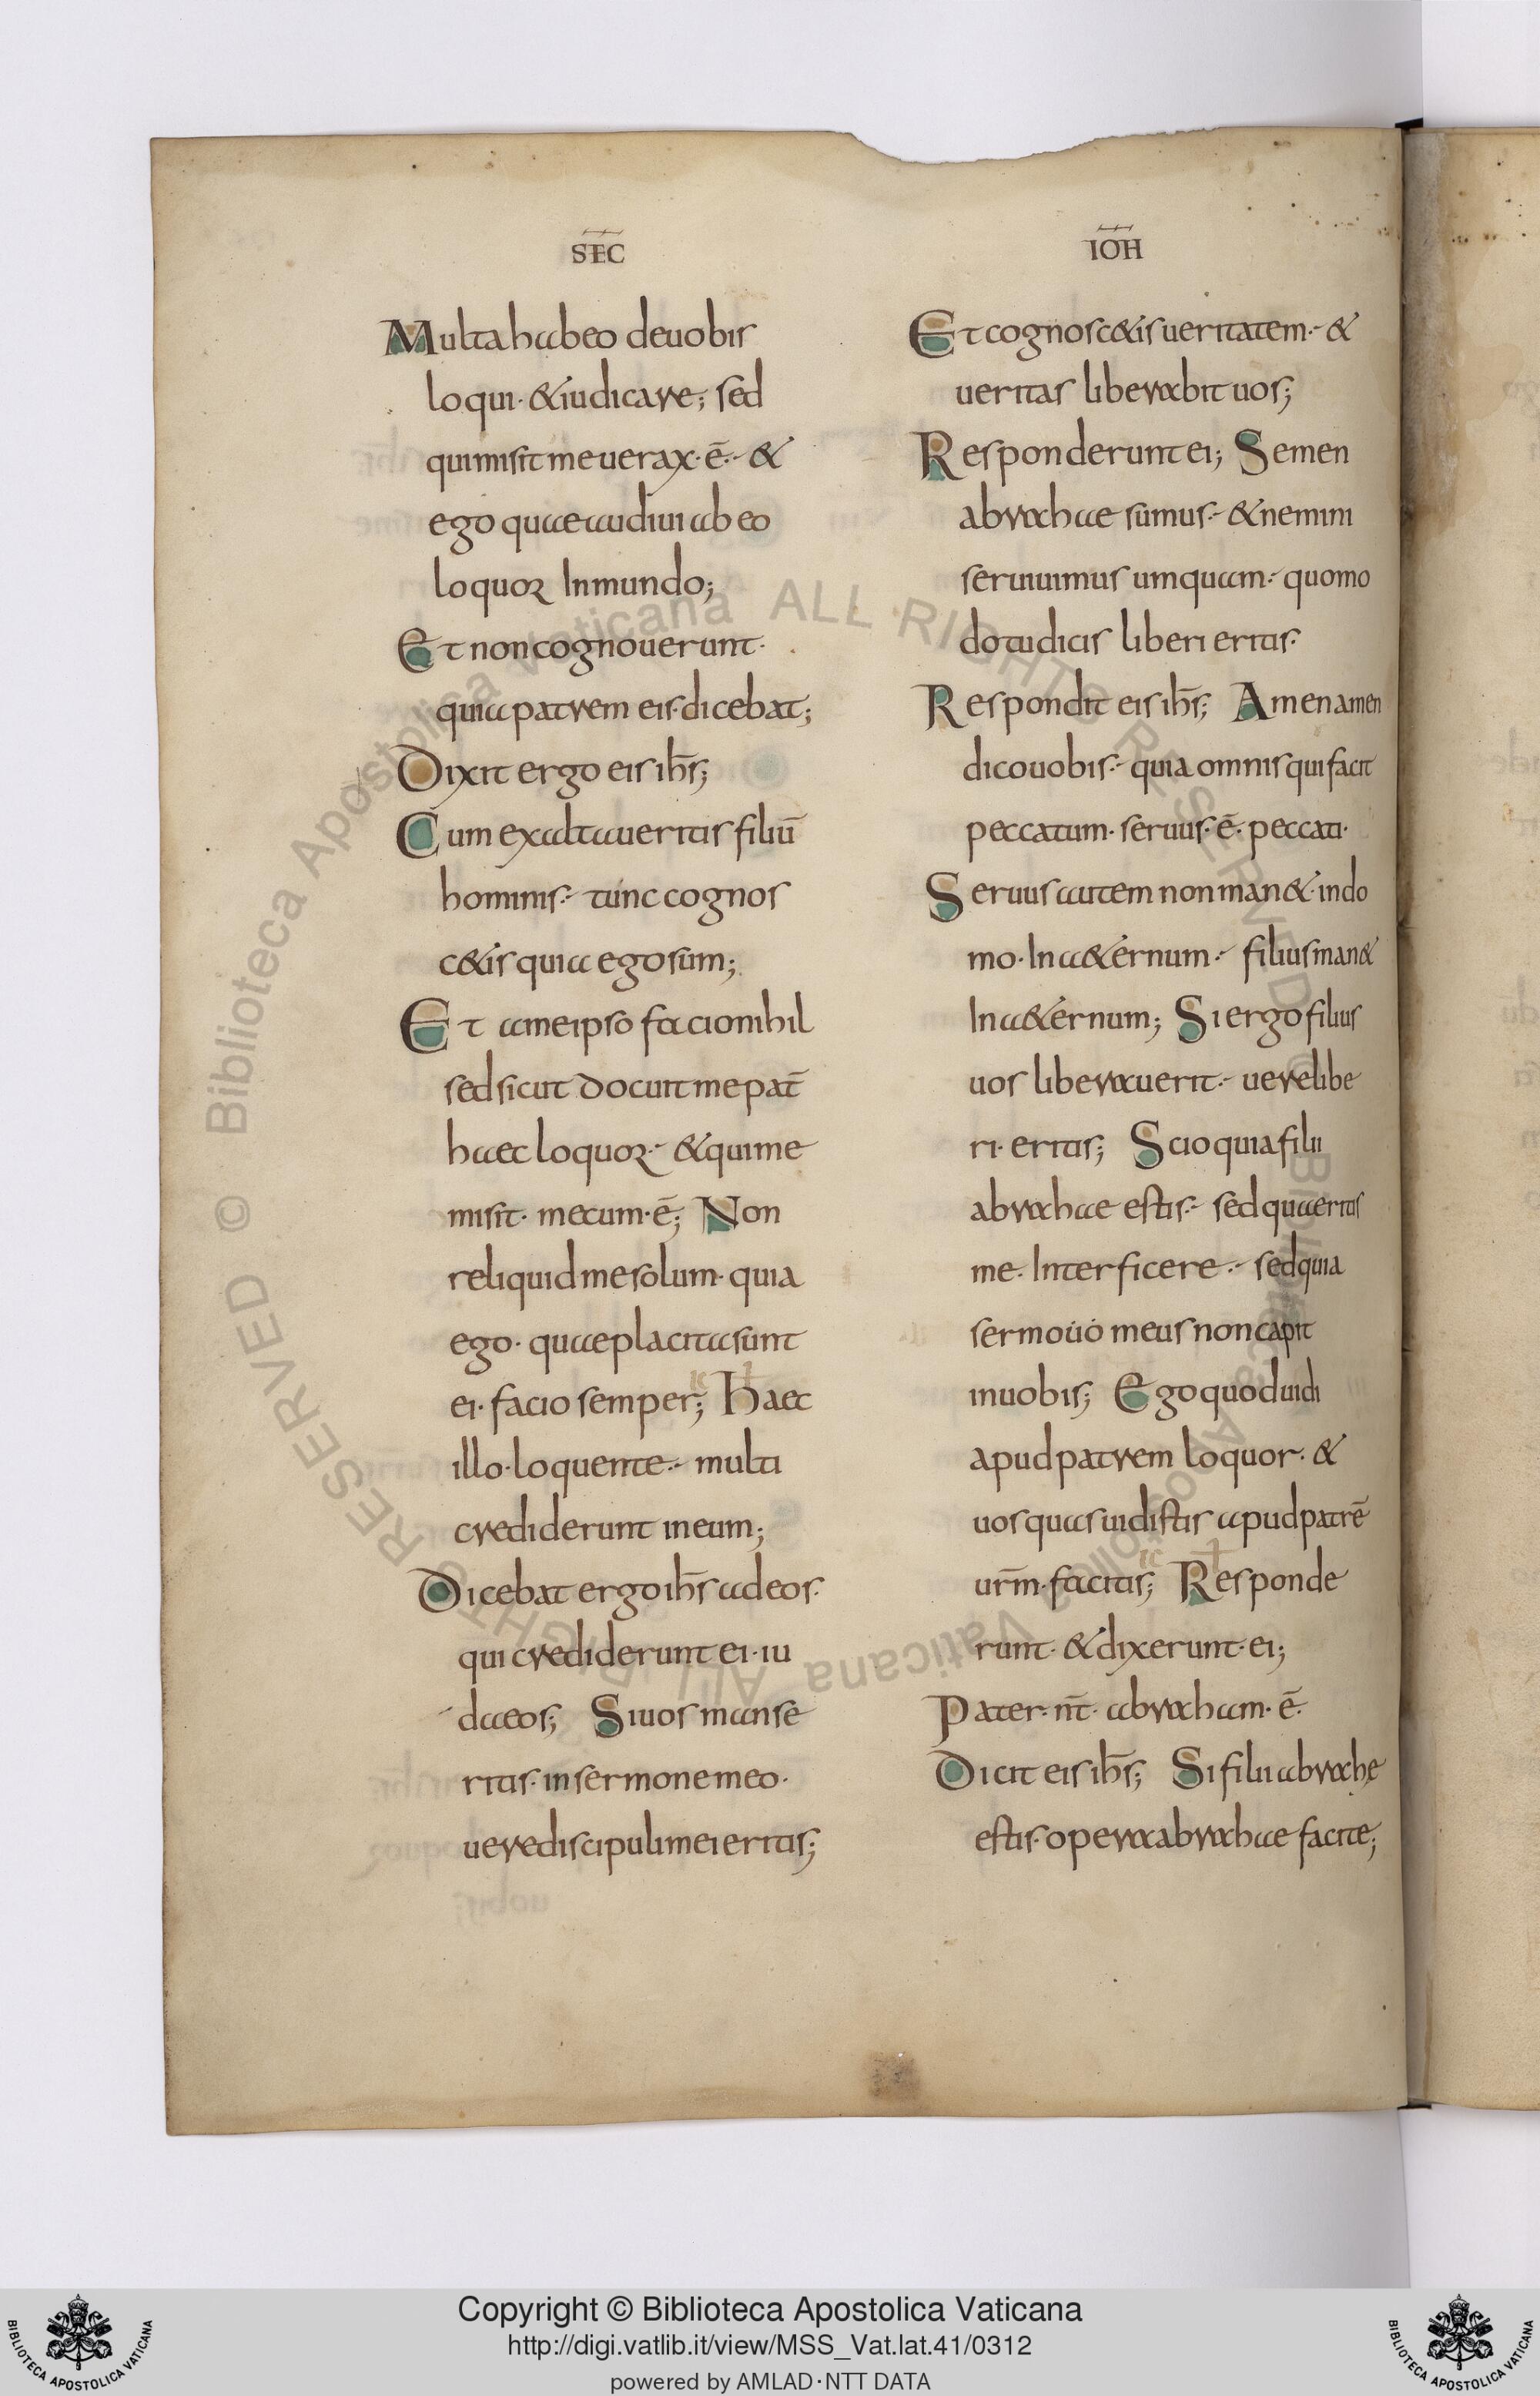 SEC̄
Multa habeo de uobis
loqui· & iudicare; sed
qui misit me uerax· ē· &
ego quae audiui ab eo
loquor In mundo;
Et non cognouerunt·
quia patrem eis· dicebat;
Dixit ergo eis ih̄s;
Cum exaltaueritis filiū
hominis· tunc cognos
c&is quia ego sum;
Et a me ipso facio nihil
sed sicut docuit me pat̄
haec loquor· & qui me
misit· mecum· ē; Non
reliquid me solum· quia
ego· quae placita sunt
ei· facio semper; Haec
illo· loquente· multi
crediderunt in eum;
Dicebat ergo ih̄s ad eos·
qui crediderunt ei· iu
daeos; Si uos manse
ritis· in sermone meo·
uere discipuli mei eritis;
IOH̄
Et cognosc&is ueritatem· &
ueritas liberabit uos;
Responderunt ei; Semen
abrahae sumus· & nemini
seruiuimus umquam· quomo
do tu dicis liberi eritis·
Respondit eis ih̄s; Amen amen
dico uobis· quia omnis qui facit
peccatum· seruus· ē· peccati·
Seruus autem non man&· in do
mo· In a&ernum· filius man&
In a&ernum; Si ergo filius
uos liberauerit· uere libe
ri· eritis; Scio quia filii
abrahae estis· sed quaeritis
me· Interficere· sed quia
sermo uo meus non capit
in uobis; Ego quod uidi
apud patrem loquor· &
uos quas uidistis apud patrē
ur̄m· facitis; Responde
runt· & dixerunt· ei;
Pater· nt̄· abraham· ē·
Dicit eis ih̄s; Si filii abrahe
estis· opera abrahae facite;
© Biblioteca Apostolica Vaticana ALL RIGHTS RESERVED © Biblioteca Apostolica Vaticana ALL RIGHTS RESERVED
Copyright © Biblioteca Apostolica Vaticana
http://digi.vatlib.it/view/MSS_Vat.lat.41/0312
powered by AMLAD·NTT DATA
BIBLIOTECA APOSTOLICA VATICANA
BIBLIOTECA APOSTOLICA VATICANA